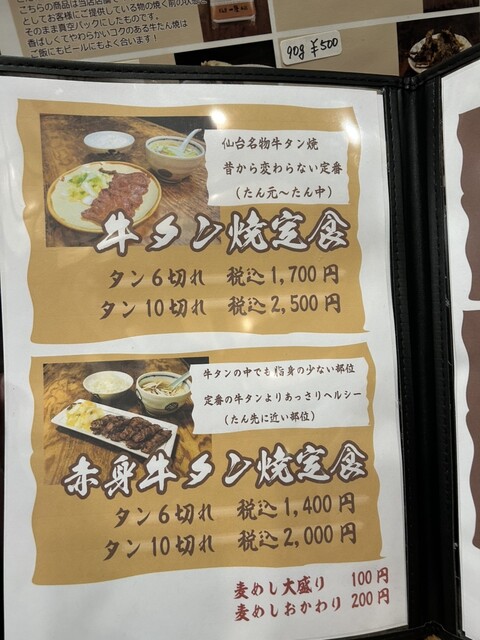 こちらの商品は当店店舗で
としてお客様にご提供している物の焼く前の状態
そのまま真空パックにしたものです。
香ばしくてやわらかいコクのある牛たん焼は
ご飯にもビールにもよく合います！
90g ¥500
仙台名物牛タン焼
昔から変わらない定番
（たん元～たん中）
牛タン焼定食
タン6切れ 税込1,700円
タン10切れ 税込2,500円
牛タンの中でも脂身の少ない部位
定番の牛タンよりあっさりヘルシー
（たん先に近い部位）
赤身牛タン焼定食
タン6切れ 税込1,400円
タン10切れ 税込2,000円
麦めし大盛り 100円
麦めしおかわり 200円